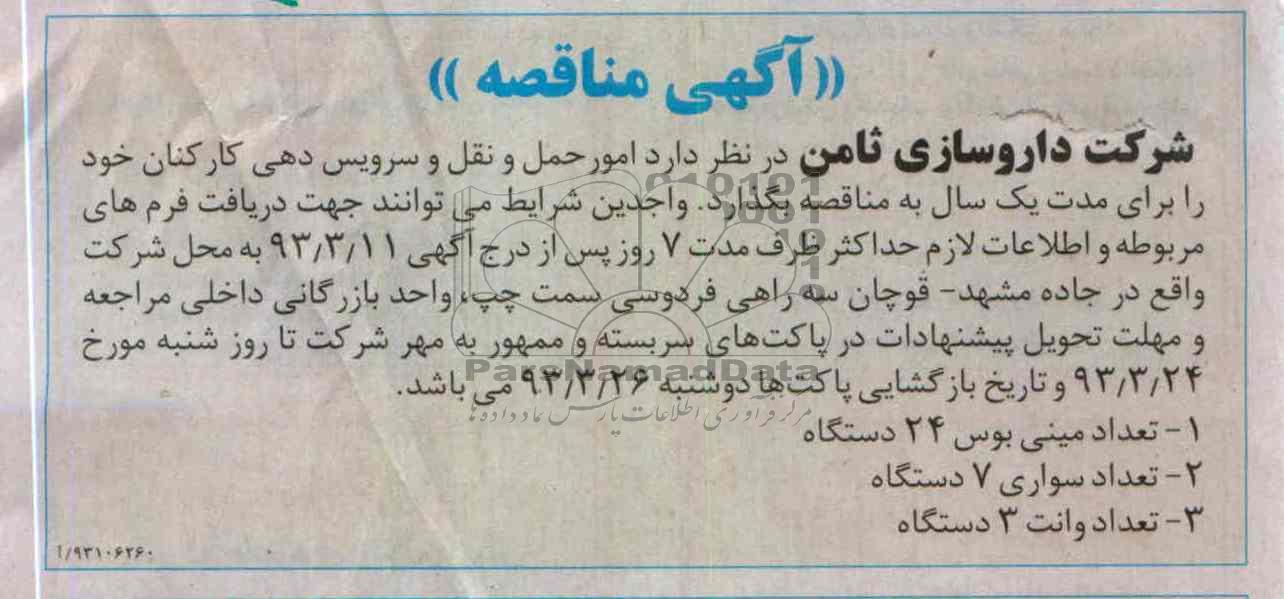 ((آگهی مناقصه))
شرکت داروسازی ثامن در نظر دارد امور حمل و نقل و سرویس دهی کارکنان خود
را برای مدت یک سال به مناقصه بگذارد. واجدین شرایط می توانند جهت دریافت فرم های
مربوطه و اطلاعات لازم حداکثر ظرف مدت ۷ روز پس از درج آگهی ۹۳/۳/۱۱ به محل شرکت
واقع در جاده مشهد- قوچان سه راهی فردوسی سمت چپ، واحد بازرگانی داخلی مراجعه
و مهلت تحویل پیشنهادات در پاکت‌های سربسته و ممهور به مهر شرکت تا روز شنبه مورخ
۹۳/۳/۲۴ و تاریخ بازگشایی پاکت‌ها دوشنبه ۹۳/۳/۲۶ می باشد.
ParsNamadData
مرکز فرآوری اطلاعات پارس نماد داده‌ها
۱- تعداد مینی بوس ۲۴ دستگاه
۲- تعداد سواری ۷ دستگاه
۳- تعداد وانت ۳ دستگاه
۹۳۱۰۶۲۶۰/آ